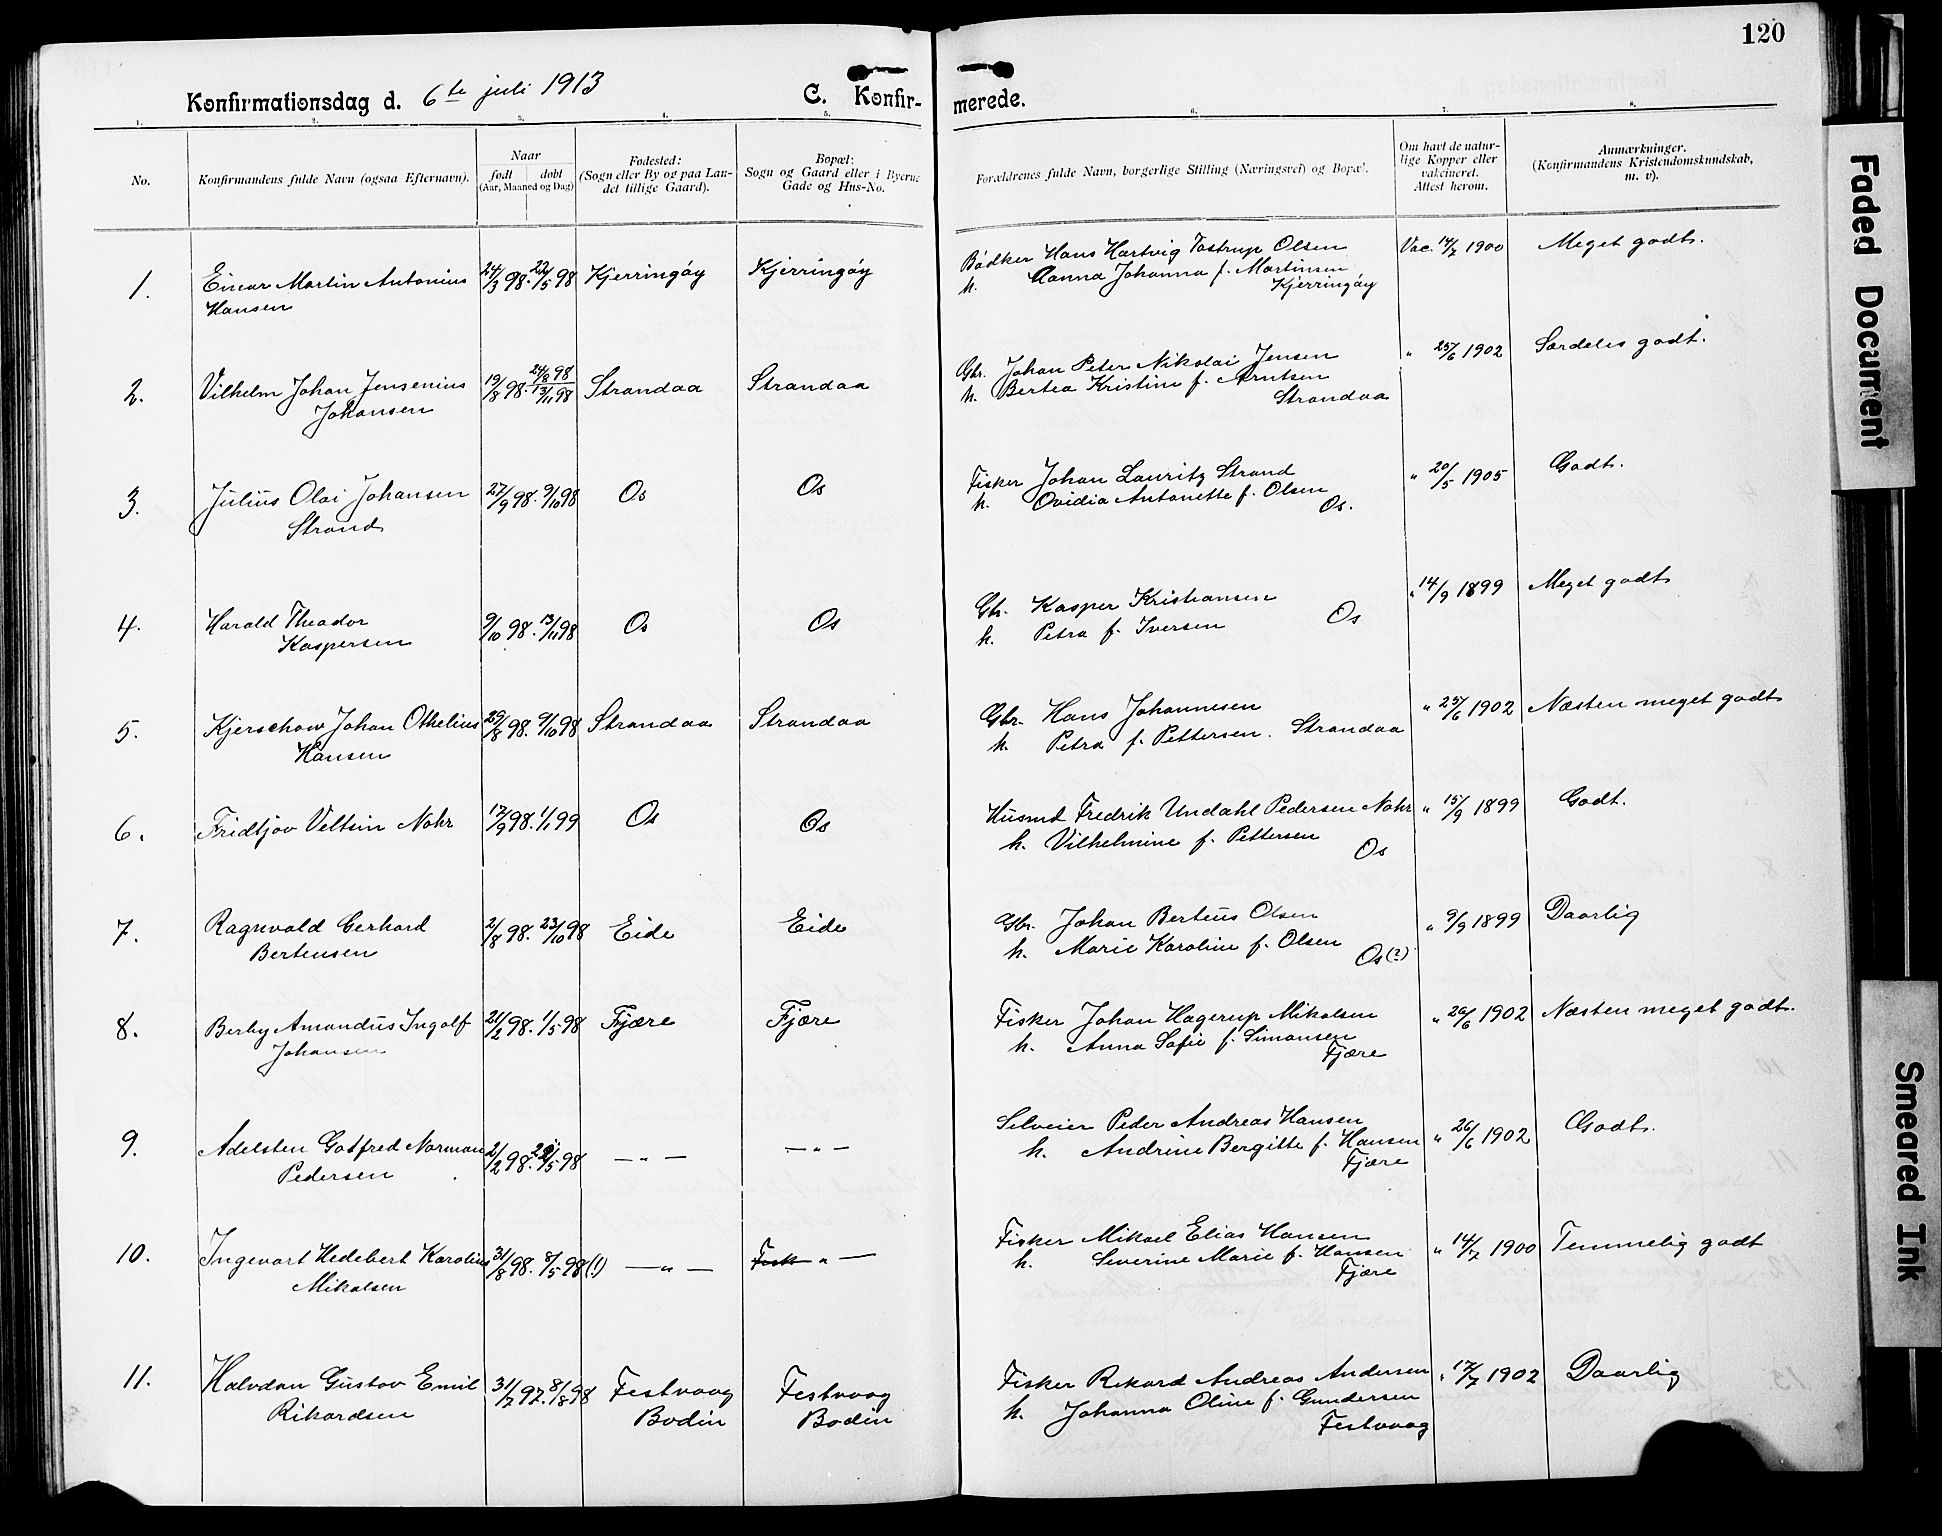 120
Konfirmationsdag d. 6te juli 1913
C. Konfirmerede.
1. 2. 3. 4. 5. 6. 7. 8.
No.
Konfirmandens fulde Navn (ogsaa Efternavn).
Naar
født døbt
(Aar, Maaned og Dag)
Fødested:
(Sogn eller By og paa Landet tillige Gaard).
Bopæl:
Sogn og Gaard eller i Byerne Gade og Hus-No.
Forældrenes fulde Navn, borgerlige Stilling (Næringsvei) og Bopæl.
Om havt de naturlige Kopper eller vakcineret. Attest herom.
Anmærkninger.
(Konfirmandens Kristendomskundskab, m. v).
1. Einar Martin Antonius 24/3 98. 22/5 98 Kjerringøy Kjerringøy Bødker Hans Hartvig Tostrup Olsen Vac. 14/7 1900 Meget godt.
Hansen h. Hanna Johanna f. Martinsen
Kjerringøy
2. Vilhelm Johan Jensenius 19/8 98. 24/8 98 13/11 98 Strandaa Strandaa Gbr. Johan Peter Nikolai Jensen " 25/6 1902 Særdeles godt.
Johansen h. Bertea Kristine f. Arntsen
Strandaa
3. Julius Olai Johansen 27/9 98. 9/10 98 Os Os Fisker Johan Lauritz Strand " 20/5 1905 Godt.
Strand h. Ovidia Antonette f. Olsen
Os.
4. Harald Theodor 9/10 98. 13/11 98 Os Os Gbr. Kasper Kristiansen Os " 14/9 1899 Meget godt
Kaspersen h. Petra f. Iversen
5. Kjerschow Johan Othelius 29/8 98. 9/10 98 Strandaa Strandaa Gbr. Hans Johannesen " 25/6 1902 Næsten meget godt
Hansen h. Petra f. Pettersen. Strandaa
6. Fridtjov Veltsin Nohr 17/9 98. 1/1 99 Os Os Husmd Fredrik Undahl Pedersen Nohr " 15/9 1899 Godt.
h. Vilhelmine f. Pettersen
Os
7. Ragnvald Gerhard 2/8 98. 23/10 98 Eide Eide Gbr. Johan Berteus Olsen " 9/9 1899 Daarlig
Berteusen h. Marie Karoline f. Olsen
Os(?)
8. Berby Amandus Ingolf 21/2 98. 1/5 98 Fjære Fjære Fisker Johan Hagerup Mikalsen " 26/6 1902 Næsten meget godt.
Johansen h. Anna Sofie f. Simonsen
Fjære
9. Adelsten Gotfred Norman 2/2 98. /5 98 — " — — " — Selveier Peder Andreas Hansen " 26/6 1902 Godt.
Pedersen h. Andrine Bergitte f. Hansen
Fjære
10. Ingevart Hedebert Karolius 31/8 98. 8/5 98(!) — " — Fisk " — Fisker Mikael Elias Hansen " 14/7 1900 Temmelig godt
Mikalsen h. Severine Marie f. Hansen
Fjære
11. Halvdan Gustav Emil 31/7 97. 8/8 98 Festvaag Festvaag Fisker Rikard Andreas Andersen " 17/7 1902 Daarlig
Rikardsen Bodin Bodin h. Johanna Oline f. Gundersen
Festvaag
Faded Document
Smeared Ink